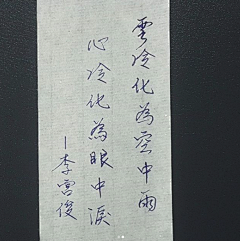 雲冷化為空中雨
心冷化為眼中淚
－李雪俊